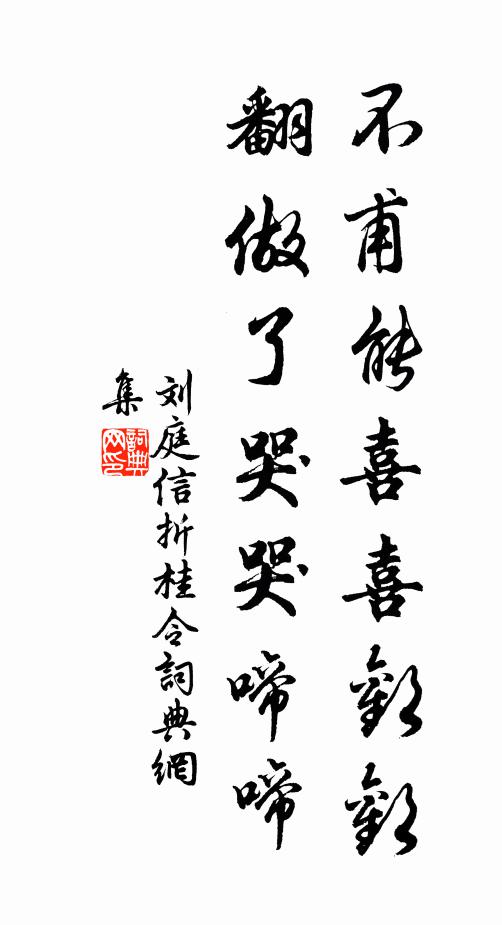 不甫能喜喜歡歡
翻做了哭哭啼啼
刘庭信折桂令詞典網
集
詞典
网印